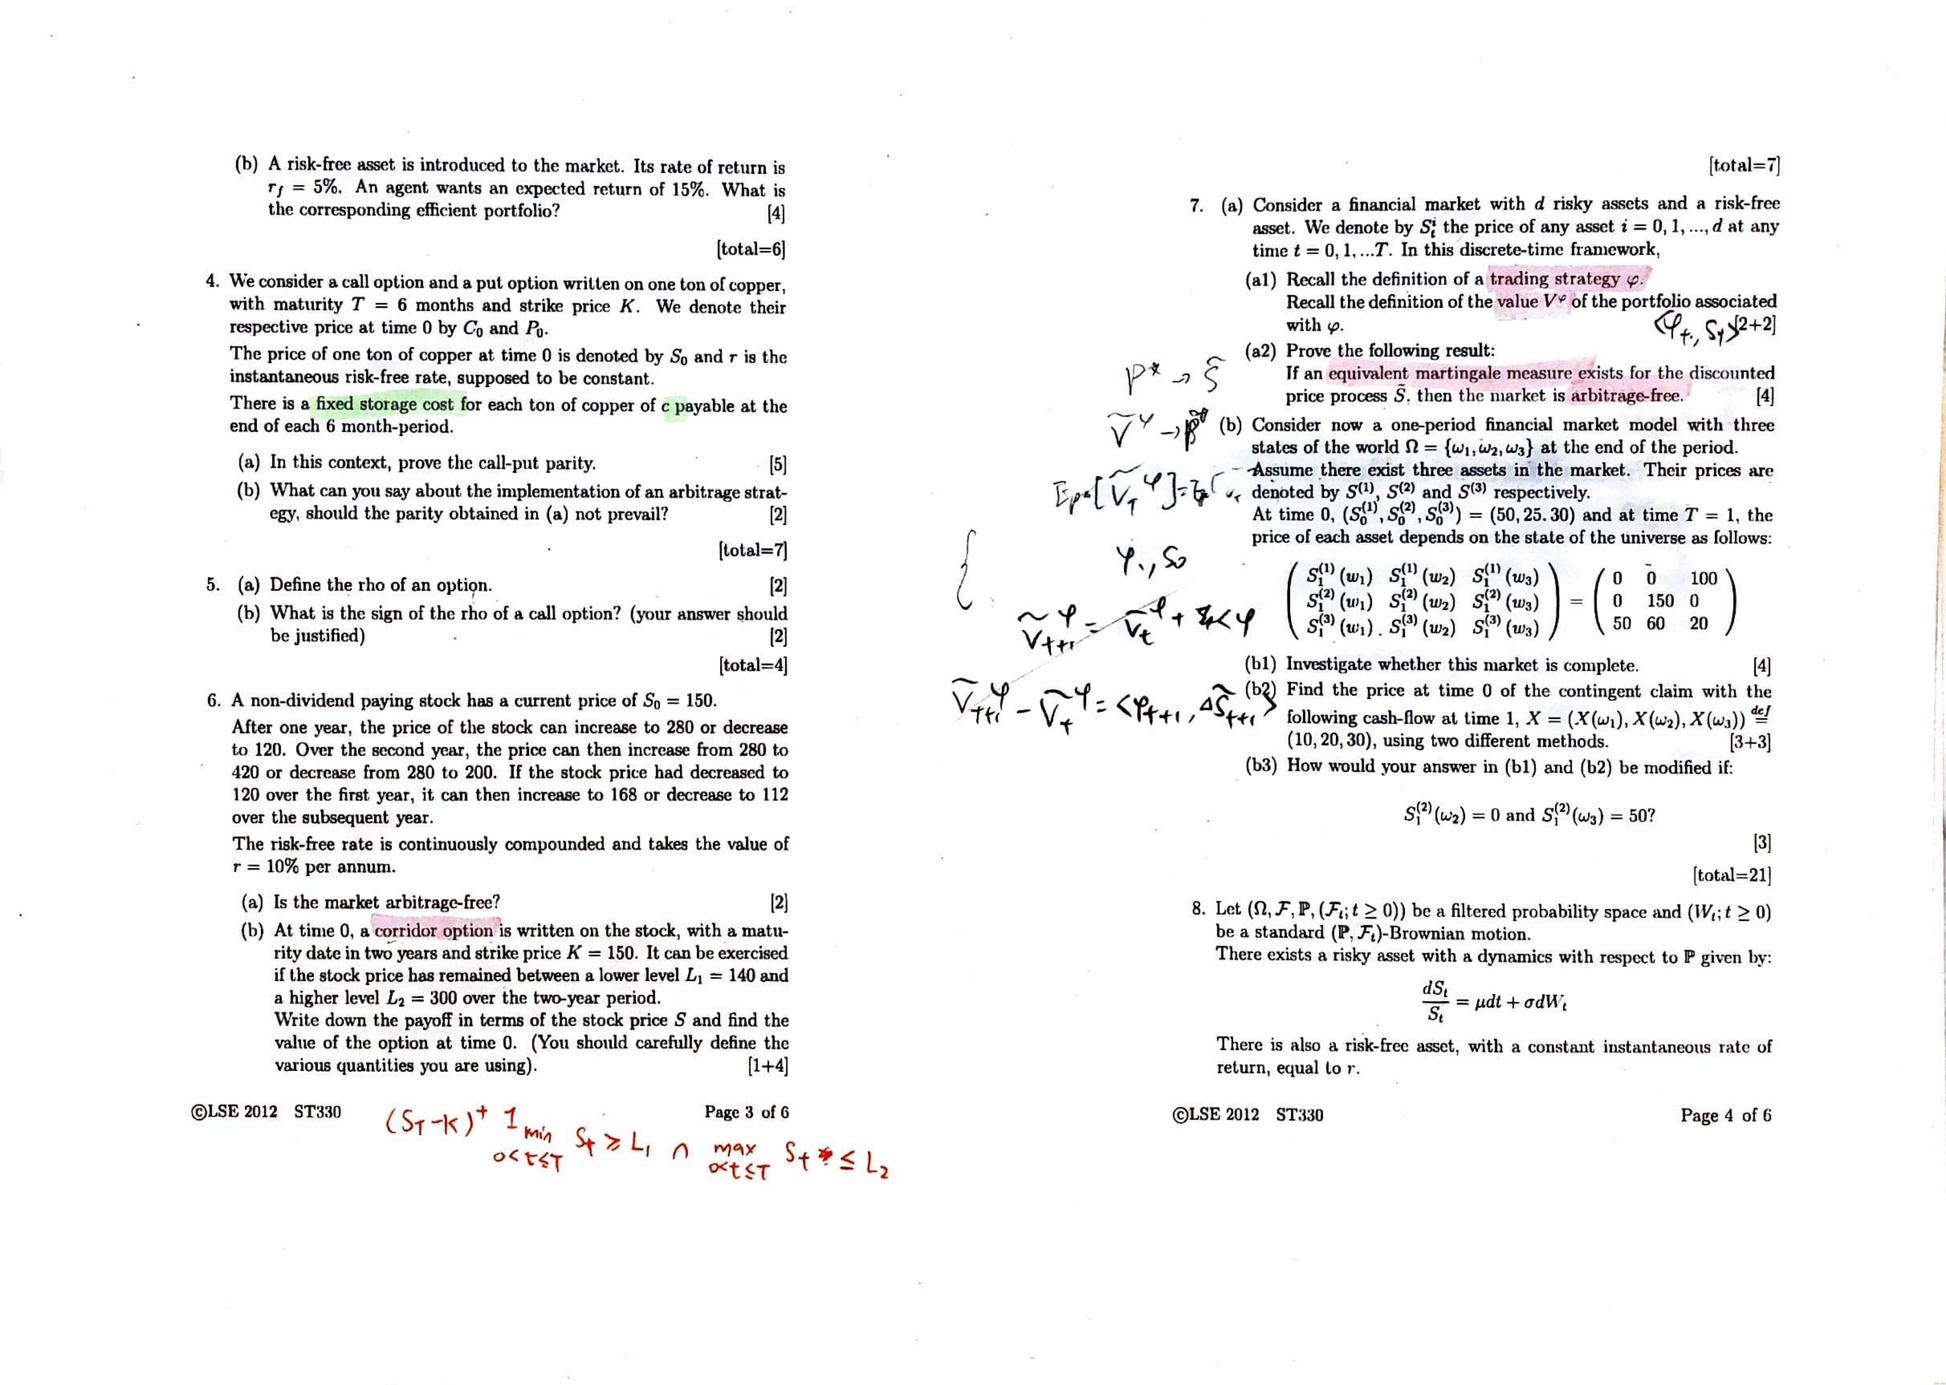 (b) A risk-free asset is introduced to the market. Its rate of return is
r_f = 5%. An agent wants an expected return of 15%. What is
the corresponding efficient portfolio? [4]
[total=6]
4. We consider a call option and a put option written on one ton of copper,
with maturity T = 6 months and strike price K. We denote their
respective price at time 0 by C₀ and P₀.
The price of one ton of copper at time 0 is denoted by S₀ and r is the
instantaneous risk-free rate, supposed to be constant.
There is a fixed storage cost for each ton of copper of c payable at the
end of each 6 month-period.
(a) In this context, prove the call-put parity. [5]
(b) What can you say about the implementation of an arbitrage strat-
egy, should the parity obtained in (a) not prevail? [2]
[total=7]
5. (a) Define the rho of an option. [2]
(b) What is the sign of the rho of a call option? (your answer should
be justified) [2]
[total=4]
6. A non-dividend paying stock has a current price of S₀ = 150.
After one year, the price of the stock can increase to 280 or decrease
to 120. Over the second year, the price can then increase from 280 to
420 or decrease from 280 to 200. If the stock price had decreased to
120 over the first year, it can then increase to 168 or decrease to 112
over the subsequent year.
The risk-free rate is continuously compounded and takes the value of
r = 10% per annum.
(a) Is the market arbitrage-free? [2]
(b) At time 0, a corridor option is written on the stock, with a matu-
rity date in two years and strike price K = 150. It can be exercised
if the stock price has remained between a lower level L₁ = 140 and
a higher level L₂ = 300 over the two-year period.
Write down the payoff in terms of the stock price S and find the
value of the option at time 0. (You should carefully define the
various quantities you are using). [1+4]
©LSE 2012 ST330 Page 3 of 6
(S_T -K)⁺ 1 min S_t ≥ L₁ ∩ max S_t ≤ L₂
0<t≤T 0<t≤T
[total=7]
7. (a) Consider a financial market with d risky assets and a risk-free
asset. We denote by S_t^i the price of any asset i = 0, 1, ..., d at any
time t = 0, 1, ...T. In this discrete-time framework,
(a1) Recall the definition of a trading strategy φ.
Recall the definition of the value V^φ of the portfolio associated
with φ. <φ_t, S_t> [2+2]
(a2) Prove the following result:
P* → S̃
If an equivalent martingale measure exists for the discounted
price process S̃, then the market is arbitrage-free. [4]
Ṽ^φ →
(b) Consider now a one-period financial market model with three
states of the world Ω = {ω₁, ω₂, ω₃} at the end of the period.
Assume there exist three assets in the market. Their prices are
E_P*[Ṽ_T^φ] =
denoted by S⁽¹⁾, S⁽²⁾ and S⁽³⁾ respectively.
At time 0, (S₀⁽¹⁾, S₀⁽²⁾, S₀⁽³⁾) = (50, 25.30) and at time T = 1, the
price of each asset depends on the state of the universe as follows:
φ₁, S₀
( S₁⁽¹⁾(w₁) S₁⁽¹⁾(w₂) S₁⁽¹⁾(w₃) ) ( 0 0 100 )
( S₁⁽²⁾(w₁) S₁⁽²⁾(w₂) S₁⁽²⁾(w₃) ) = ( 0 150 0 )
( S₁⁽³⁾(w₁) S₁⁽³⁾(w₂) S₁⁽³⁾(w₃) ) ( 50 60 20 )
(b1) Investigate whether this market is complete. [4]
Ṽ_{t+1}^φ - Ṽ_t^φ = <φ_{t+1}, ΔS̃_{t+1}>
(b2) Find the price at time 0 of the contingent claim with the
following cash-flow at time 1, X = (X(ω₁), X(ω₂), X(ω₃)) def=
(10, 20, 30), using two different methods. [3+3]
(b3) How would your answer in (b1) and (b2) be modified if:
S₁⁽²⁾(ω₂) = 0 and S₁⁽²⁾(ω₃) = 50?
[3]
[total=21]
8. Let (Ω, F, ℙ, (F_t; t ≥ 0)) be a filtered probability space and (W_t; t ≥ 0)
be a standard (ℙ, F_t)-Brownian motion.
There exists a risky asset with a dynamics with respect to ℙ given by:
dS_t/S_t = μdt + σdW_t
There is also a risk-free asset, with a constant instantaneous rate of
return, equal to r.
©LSE 2012 ST330 Page 4 of 6